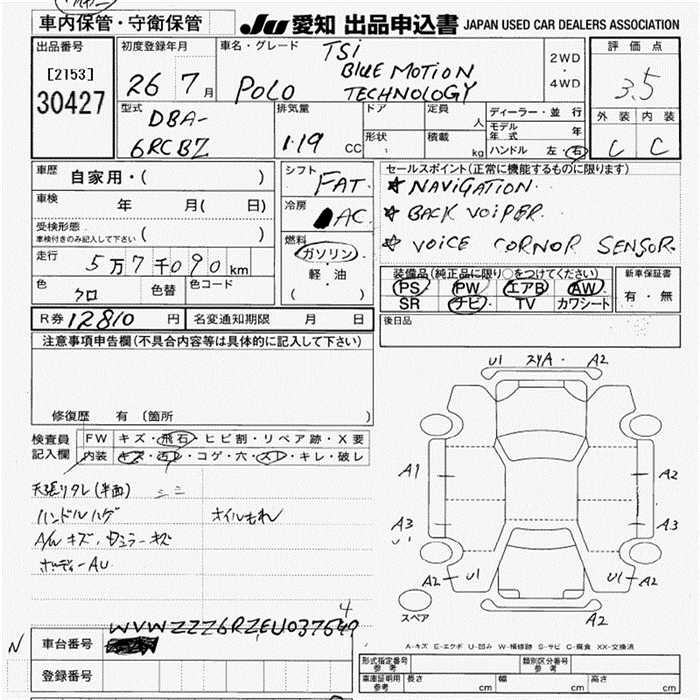 車内保管・守衛保管
JU 愛知 出品申込書 JAPAN USED CAR DEALERS ASSOCIATION
出品番号
[2153]
30427
初度登録年月
26年7月
車名・グレード
POLO
TSi
BLUE MOTION
TECHNOLOGY
2WD
・
4WD
評価点
3.5
外装 内装
C C
型式
DBA-
6RCBZ
排気量
1.19 CC
ドア
定員 人
形状
積載 kg
ディーラー・並行
モデル年式 年
ハンドル 左・右
車歴
自家用・( )
車検 年 月( 日)
受検形態
車検付きのみ記入して下さい ( )
走行
5万7千090km
色
クロ
色替
色コード
シフト
FAT
冷房
AC
燃料
ガソリン
・
軽油
( )
セールスポイント(正常に機能するものに限ります)
★NAVIGATION.
★BACK VOIPER.
★VOICE CORNOR SENSOR.
装備品(純正品に限り○をつけてください)
PS PW エアB AW
SR ナビ TV カワシート
新車保証書
有・無
R券 12810円
名変通知期限 月 日
後日品
注意事項申告欄(不具合内容等は具体的に記入して下さい)
修復歴 有〔箇所 〕
検査員
記入欄
FW キズ・飛石・ヒビ割・リペア跡・X要
内装 キズ・汚レ・コゲ・穴・スレ・キレ・破レ
天張リタレ(半面)
ハンドルハゲ オイルもれ
A/W キズ.
ボディーAU
U1 スリA・A2
A1 A2
A3 A3
U1
A2 U1 U1 A2
A2
スペア
4
WVWZZZ6RZEU037649
N 車台番号
登録番号
A-キズ E-エクボ U-凹み W-補修跡 S-サビ C-腐食 XX-交換済
形式指定番号
参考
類別区分番号
参考
車庫証明用
参考
長さ cm
幅 cm
高さ cm